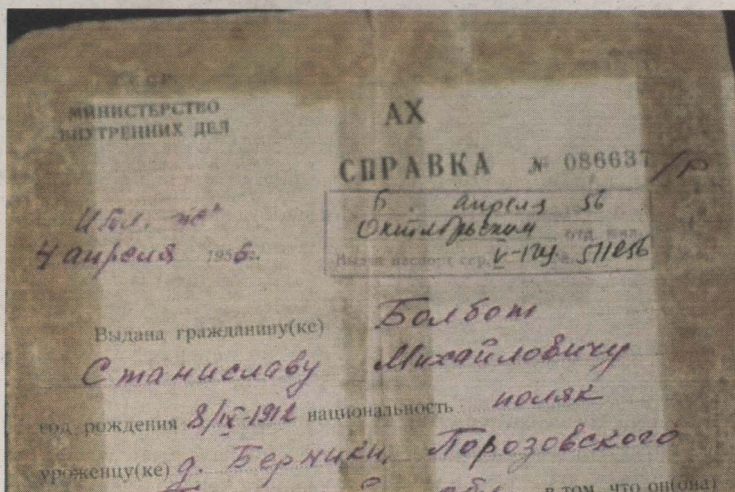 МИНИСТЕРСТВО
ВНУТРЕННИХ ДЕЛ
АХ
СПРАВКА № 086637
апреля 56
Октябрьским отд. мил.
Выдан паспорт сер.
4 апреля 1956г.
Выдана гражданину(ке) Болбот
Станиславу Михайловичу
год рождения 8/IX-1912 национальность поляк
уроженцу(ке) д. Берники, Порозовского
в том, что он(она)